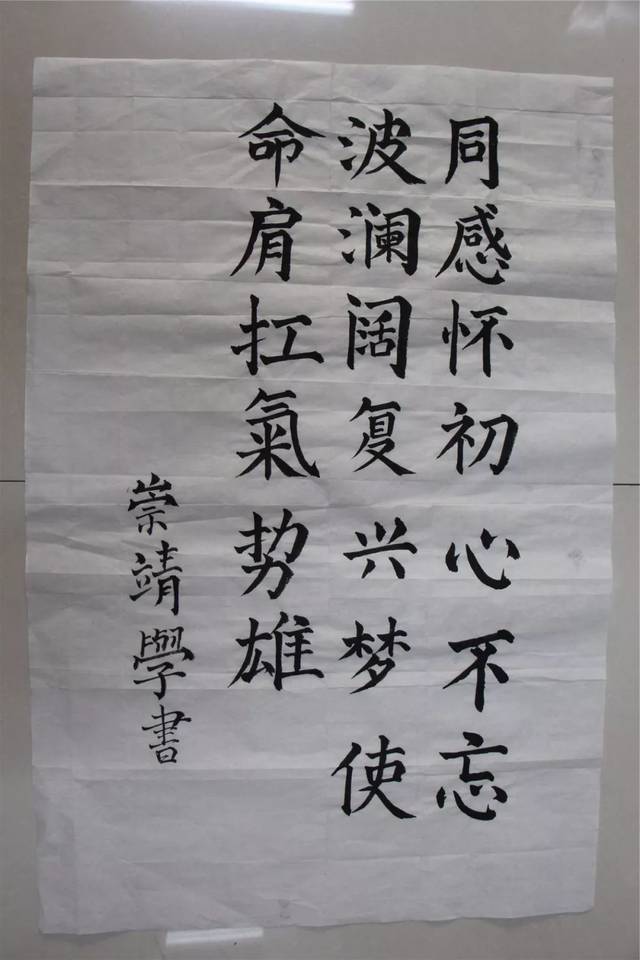 同感怀初心不忘
波澜阔复兴梦使
命肩扛氣势雄
崇靖學書